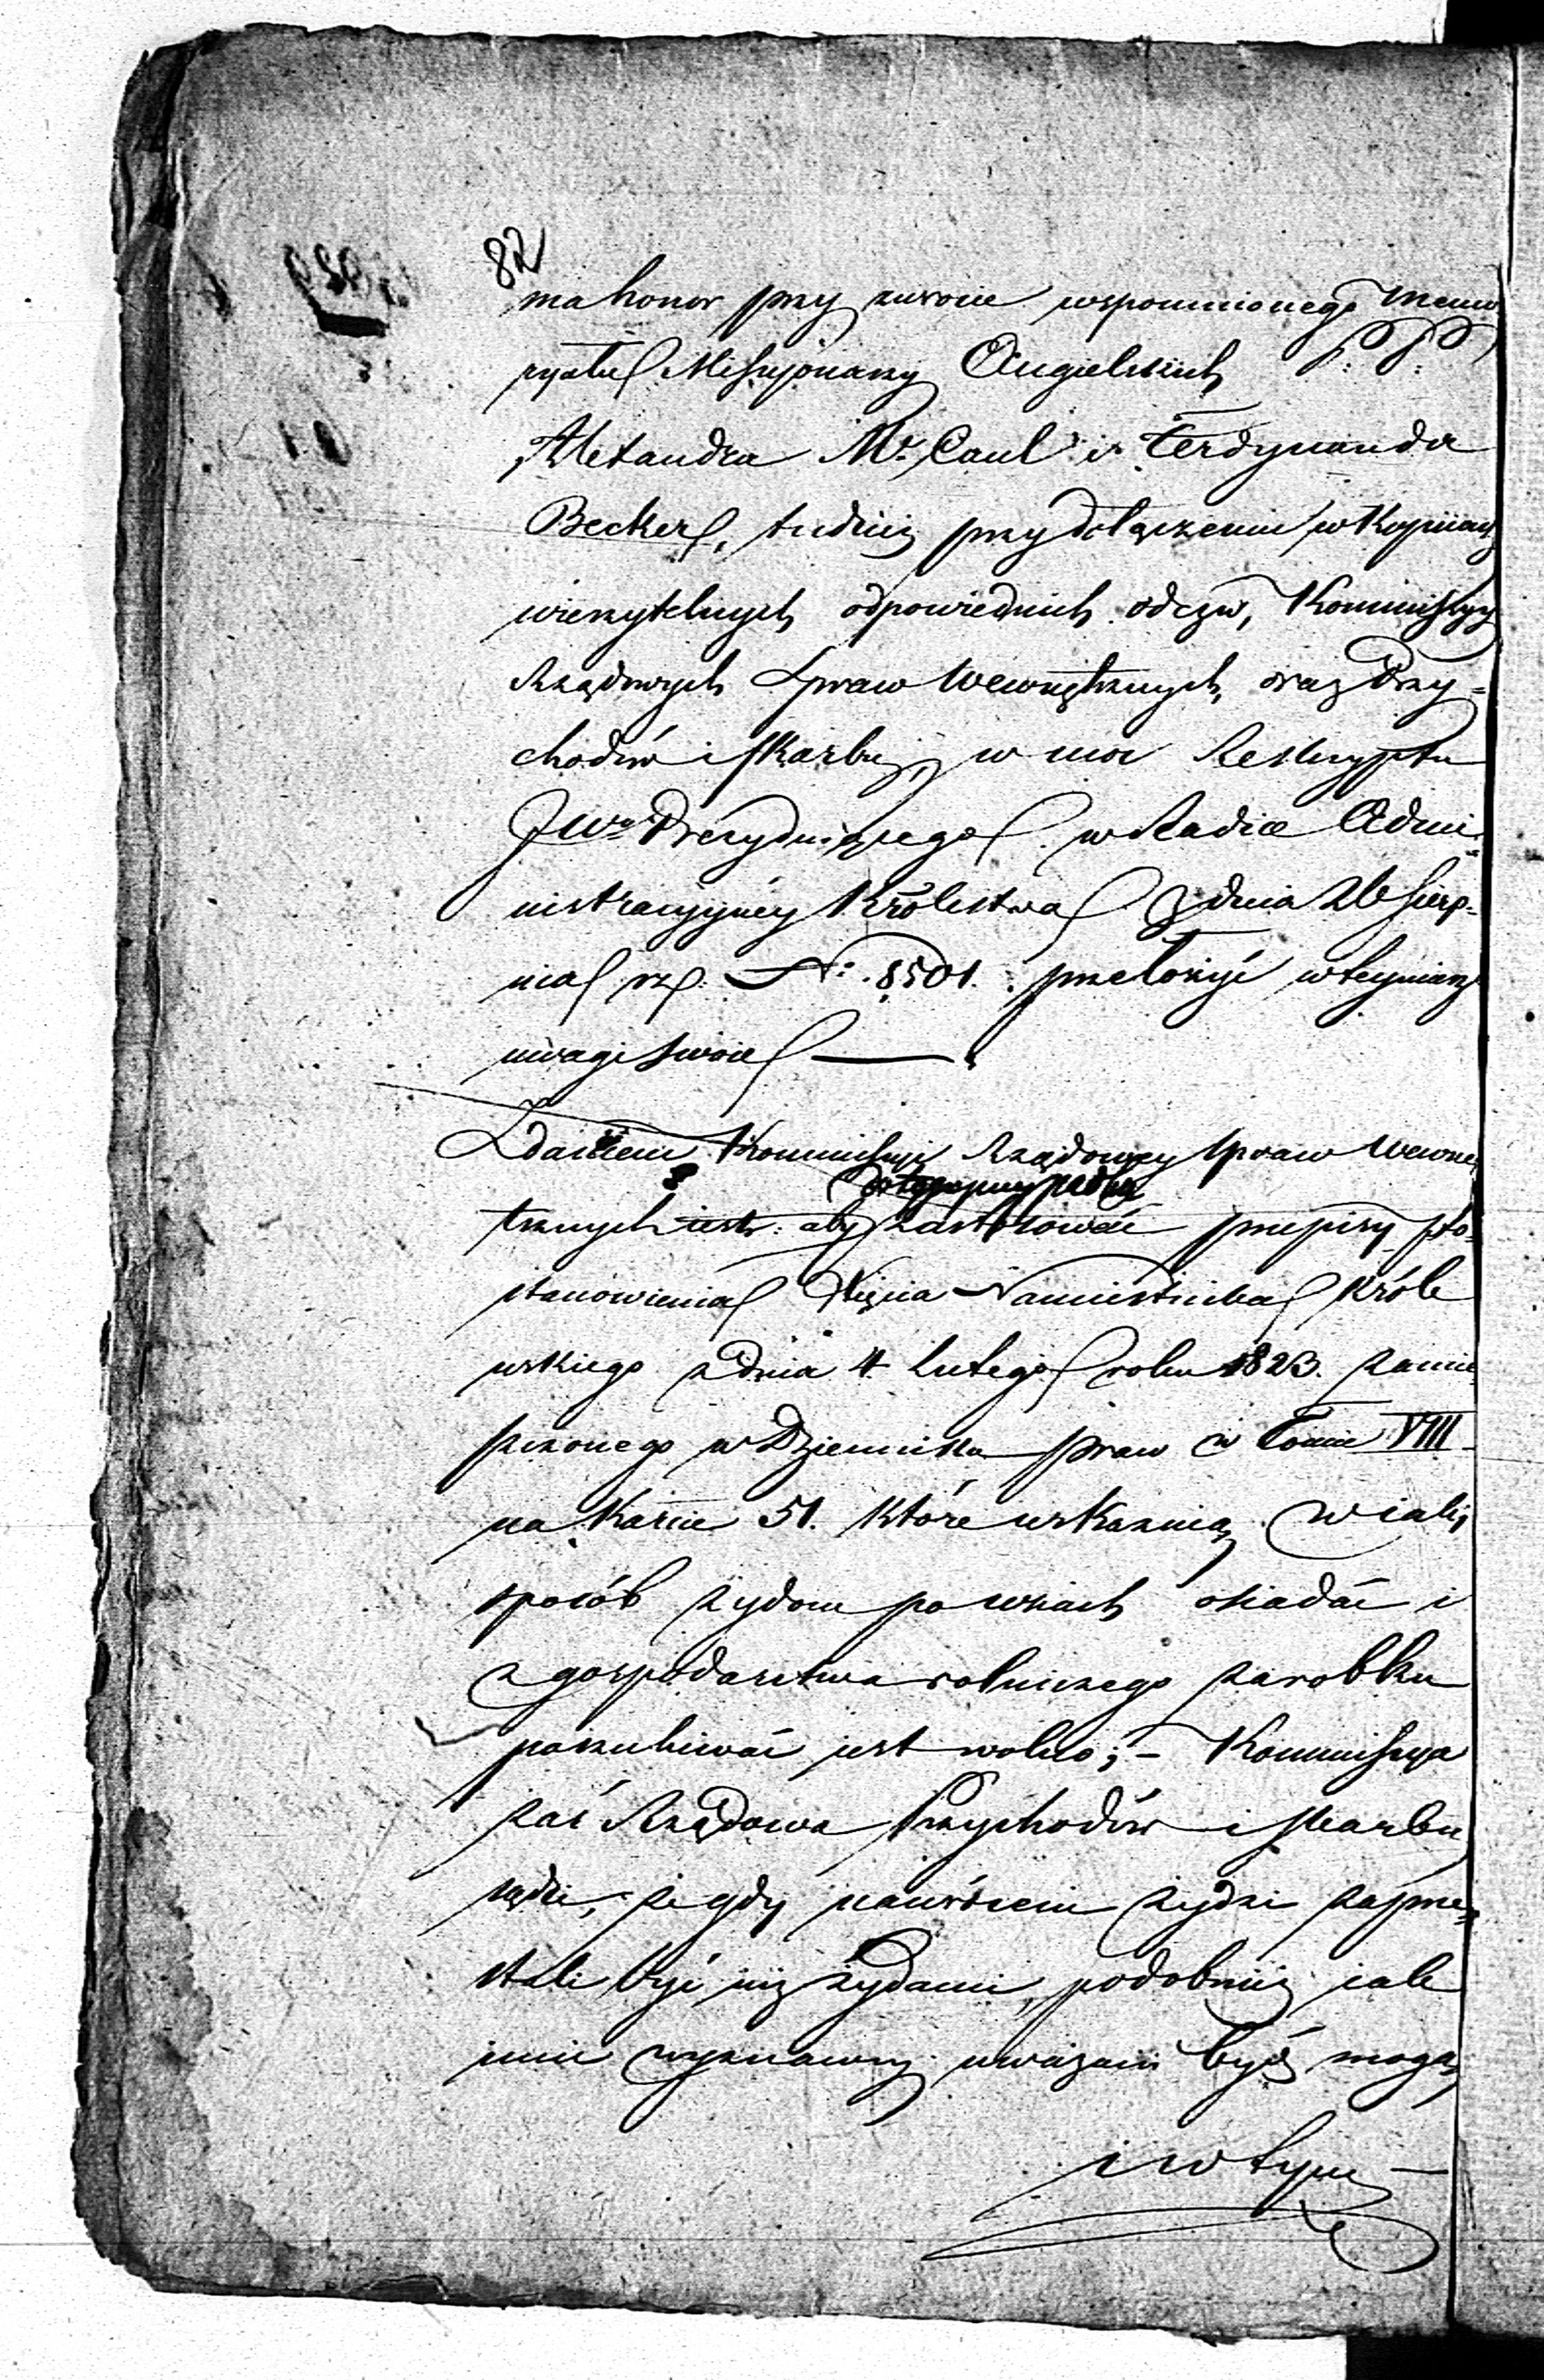 82
ma honor przy zwrocie wspomnionego memo
ryału Missyonarzy Angielskich P: P:
Alexandra Mc Caul i Ferdynanda
Becker, tudzież przy dołączeniu w kopiiach
wierzytelnych odpowiednich odezw, Kommissyy
Rządowych Spraw Wewnętrznych, oraz Przy=
chodów i Skarbu, w moc Reskryptu
JWo Prezyduiącego w Radzie Admi=
nistracyyney Królestwa z dnia 26 Sierp=
nia rb. No. 8501. przełożyć w tey mierze
uwagi swoie —
Zdaniem Kommissyi Rządowey Spraw Wewnę
trznych iest: aby zastosować przepisy po=
stanowienia Xięcia Namiestnika Króle
wskiego z dnia 4. Lutego roku 1823. zamie=
szczonego w Dzienniku praw w Tomie VIII
na karcie 51. które wskazuią w iaki
sposób żydom po wsiach osiadać i
z gospodarstwa rolniczego zarobku
poszukiwać iest wolno; – Kommissya
zaś Rządowa Przychodów i Skarbu
sądzi, że gdy nawróceni żydzi zaprze=
stali być iuż żydami, podobnież iak
inni wyznawcy uważani być mogą,
i w tym —